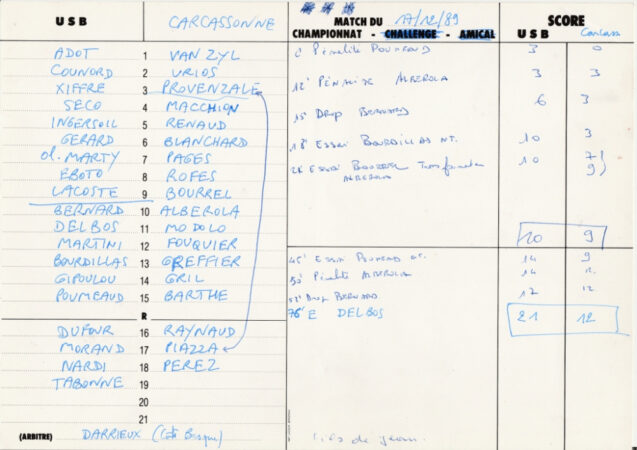 U S B CARCASSONNE
ADOT 1 VAN ZYL
COUNORD 2 URIOS
XIFFRE 3 PROVENZALE
SECO 4 MACCHION
INGERSOIL 5 RENAUD
GERARD 6 BLANCHARD
Ol. MARTY 7 PAGES
EBOTO 8 ROFES
LACOSTE 9 BOURREL
BERNARD 10 ALBEROLA
DELBOS 11 MODOLO
MARTINI 12 FOUQUIER
BOURDILLAS 13 GREFFIER
GIPOULOU 14 GRIL
POUMEAUD 15 BARTHE
R
DUFOUR 16 RAYNAUD
MORAND 17 PIAZZA
NARDI 18 PEREZ
TABONNE 19
20
21
(ARBITRE) DARRIEUX (Côte Basque)
MATCH DU 17/12/89
CHAMPIONNAT - CHALLENGE - AMICAL
SCORE
U S B Carcass
Pénalité 3 0
12' PÉNALITÉ ALBEROLA 3 3
15' Drop BERNARD 6 3
18' Essai BOURDILLAS NT. 10 3
Essai BOURREL Transformation 10 7
ALBEROLA 9
10 9
Essai 14 9
50' Pénalité ALBEROLA 14 12
Drop BERNARD 17 12
76' E DELBOS 21 12